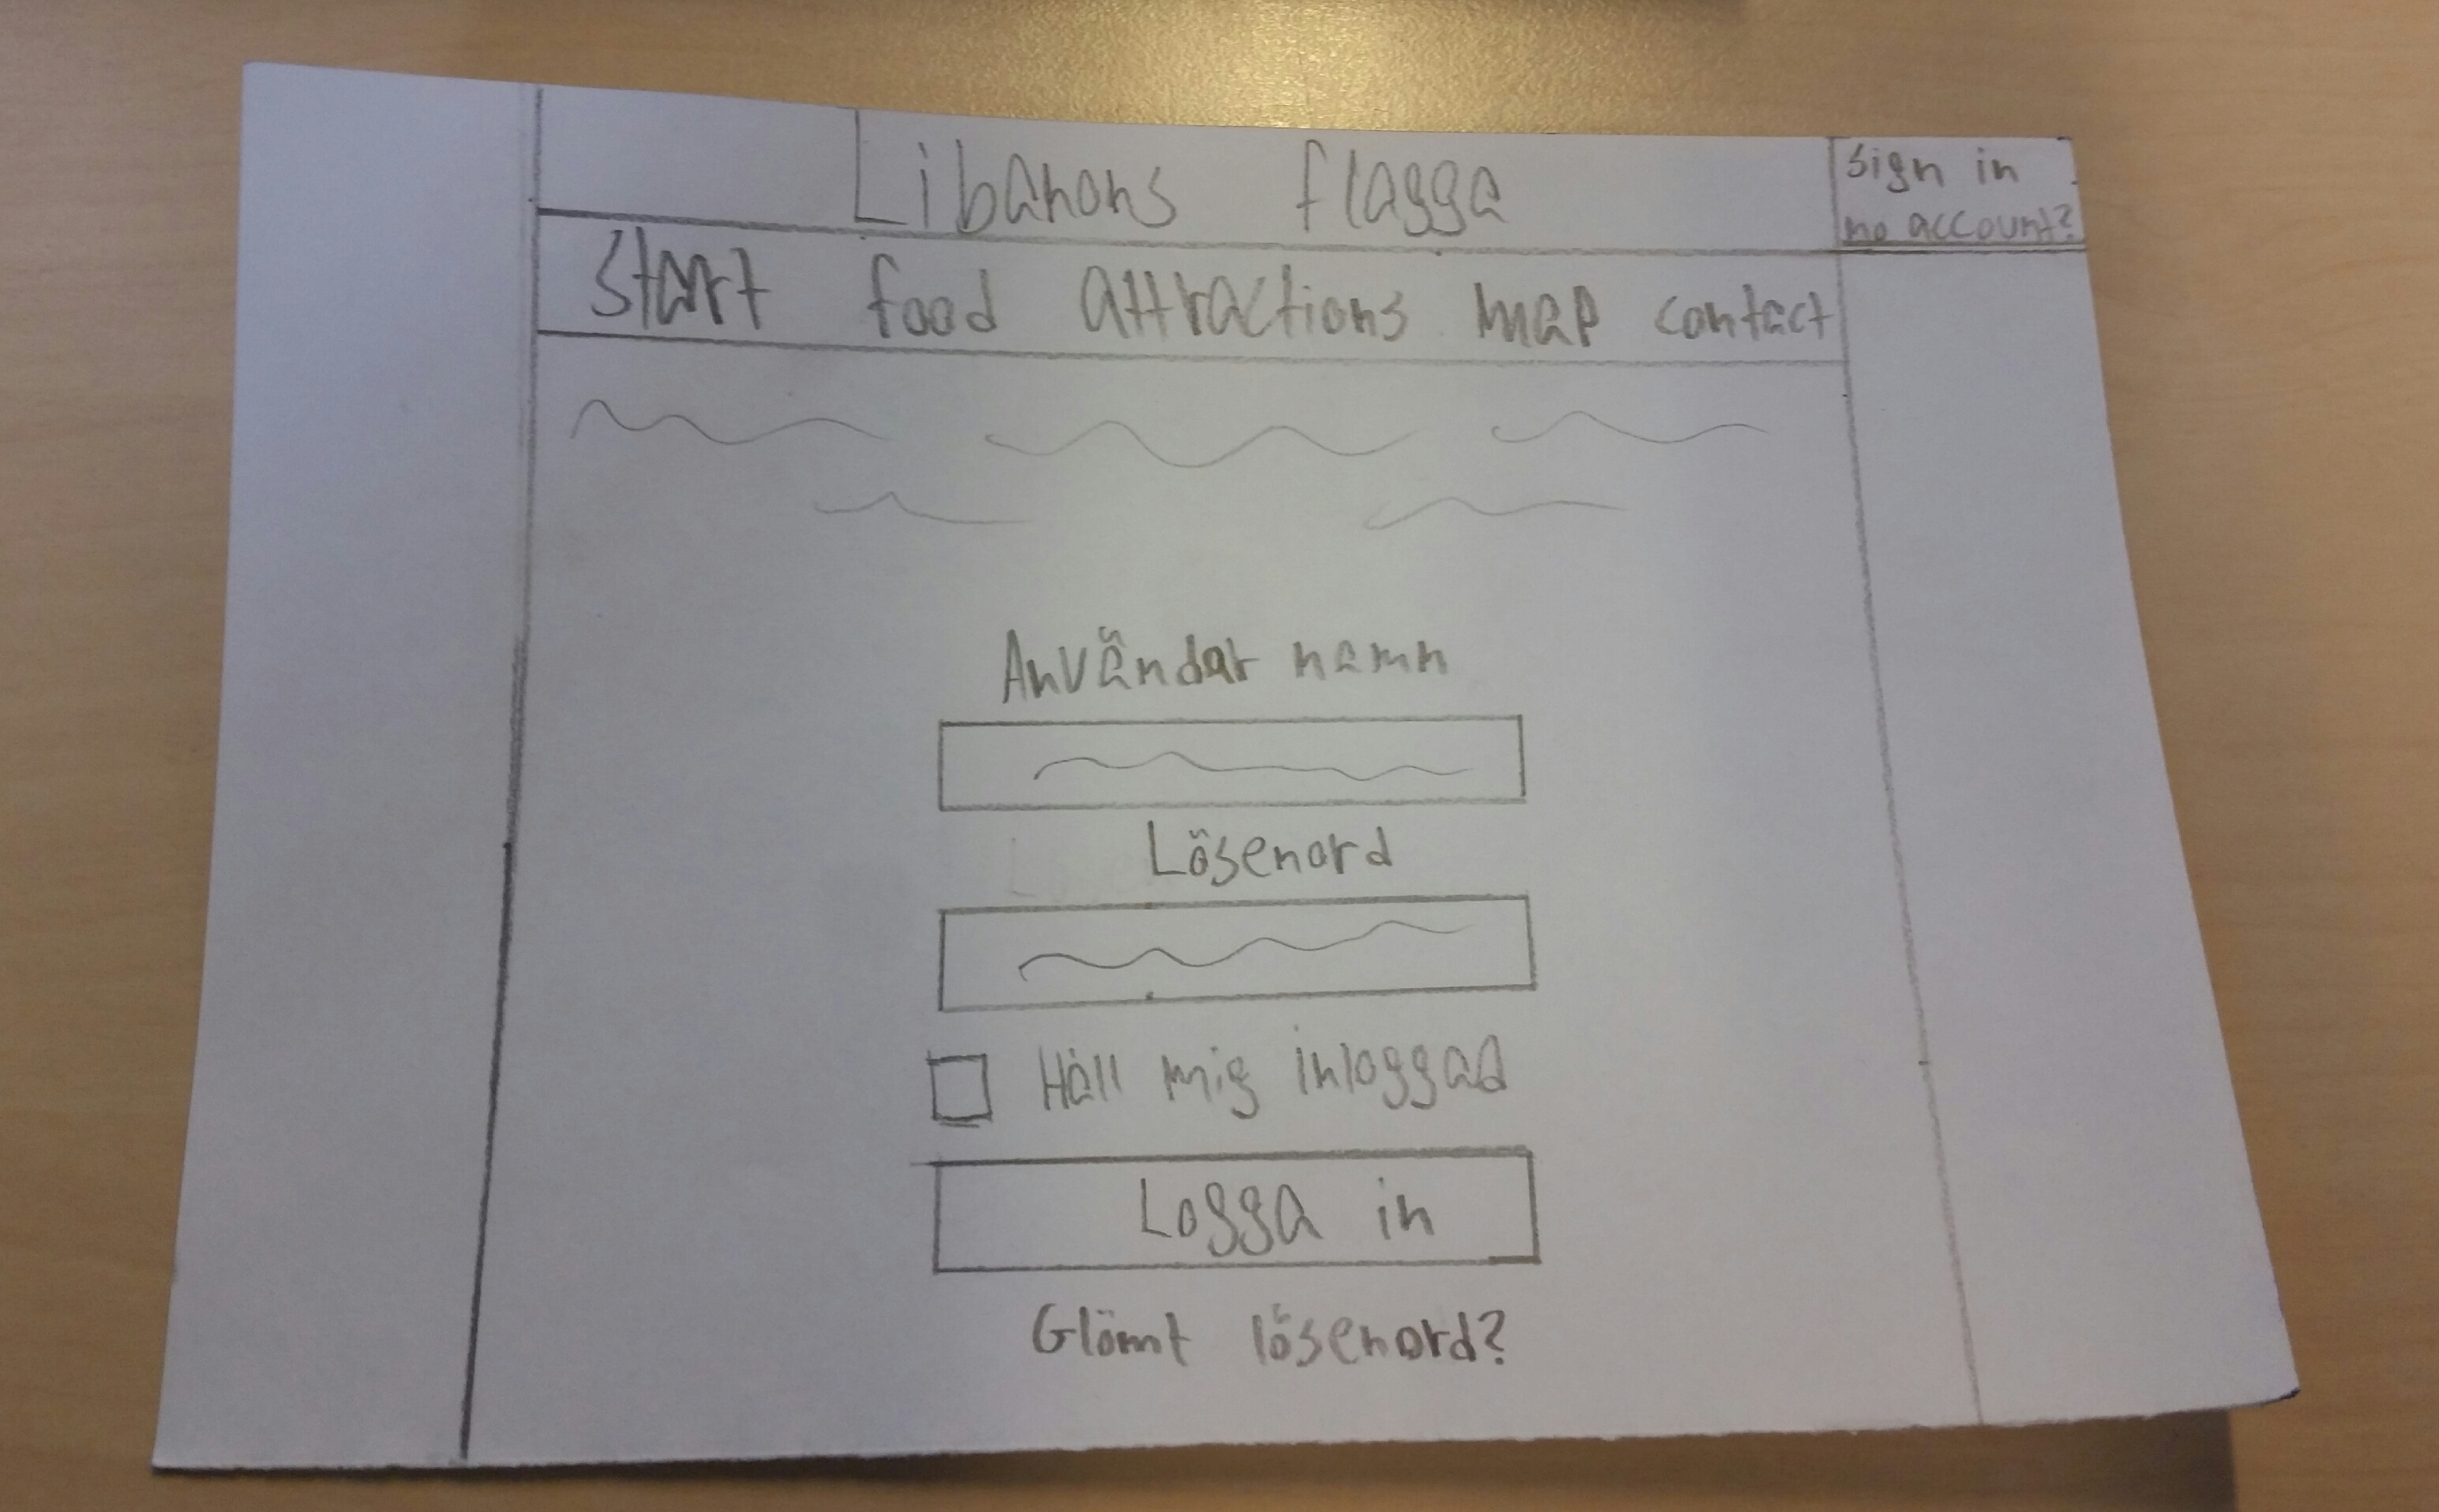 Libanons flagga
sign in
no account?
Start food attractions map contact
Användar namn
Lösenord
Håll mig inloggad
Logga in
Glömt lösenord?